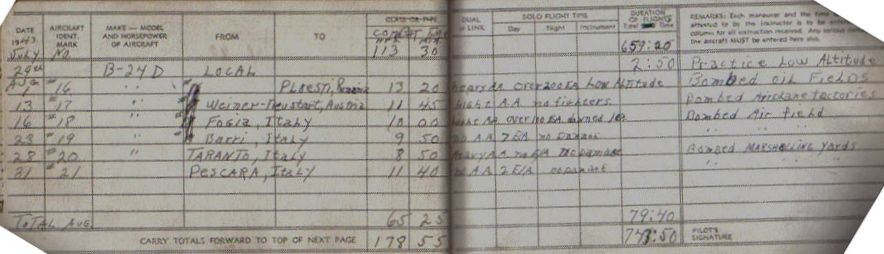 DATE 1943 AIRCRAFT IDENT. MARK MAKE — MODEL AND HORSEPOWER OF AIRCRAFT FROM TO CLASS OR TYPE DUAL or LINK SOLO FLIGHT TIME Day Night Instrument DURATION OF FLIGHT Total Time REMARKS: Each maneuver and the time
attested to by the instructor is to be
column for all instruction received. Any serious
the aircraft MUST be entered here also.
July No 113 30 659:20
29th B-24D LOCAL 2:50 Practice Low Altitude
Aug #16 " Ploesti, 13 20 heavy AA over 200 EA Low Altitude Bombed Oil Fields
13 #17 " Weiner-Neustart, Austria 11 45 light A.A. no fighters Bombed Airplane factories
16 #18 " Fogia, Italy 10 00 AA over 110 EA downed Bombed Air field
23 #19 " Barri, Italy 9 50 no AA 7 EA no Damage " " "
28 #20 " TARANTO, Italy 8 50 heavy AA no EA no Damage Bombed MARSHALLING Yards
31 #21 PESCARA, Italy 11 40 no AA 2 E/A no damage " " "
TOTAL AUG 65 25 79:40
CARRY TOTALS FORWARD TO TOP OF NEXT PAGE 178 55 PILOT'S SIGNATURE